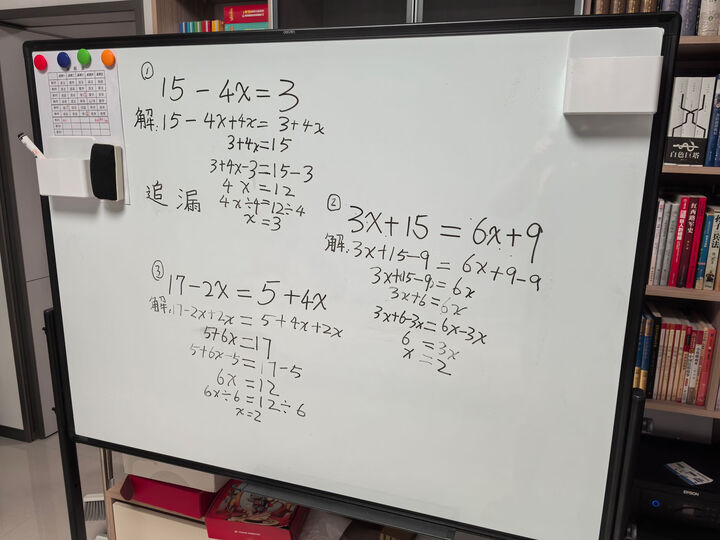 ①
15 - 4x = 3
解:15 - 4x+4x = 3+4x
3+4x=15
3+4x-3=15-3
4x=12
4x÷4=12÷4
x=3
追漏
②
3x+15 = 6x+9
解:3x+15-9 = 6x+9-9
3x+15-9=6x
3x+6=6x
3x+6-3x=6x-3x
6=3x
x=2
③
17-2x = 5+4x
解:17-2x+2x = 5+4x+2x
5+6x=17
5+6x-5=17-5
6x=12
6x÷6=12÷6
x=2
白色巨塔
EPSON